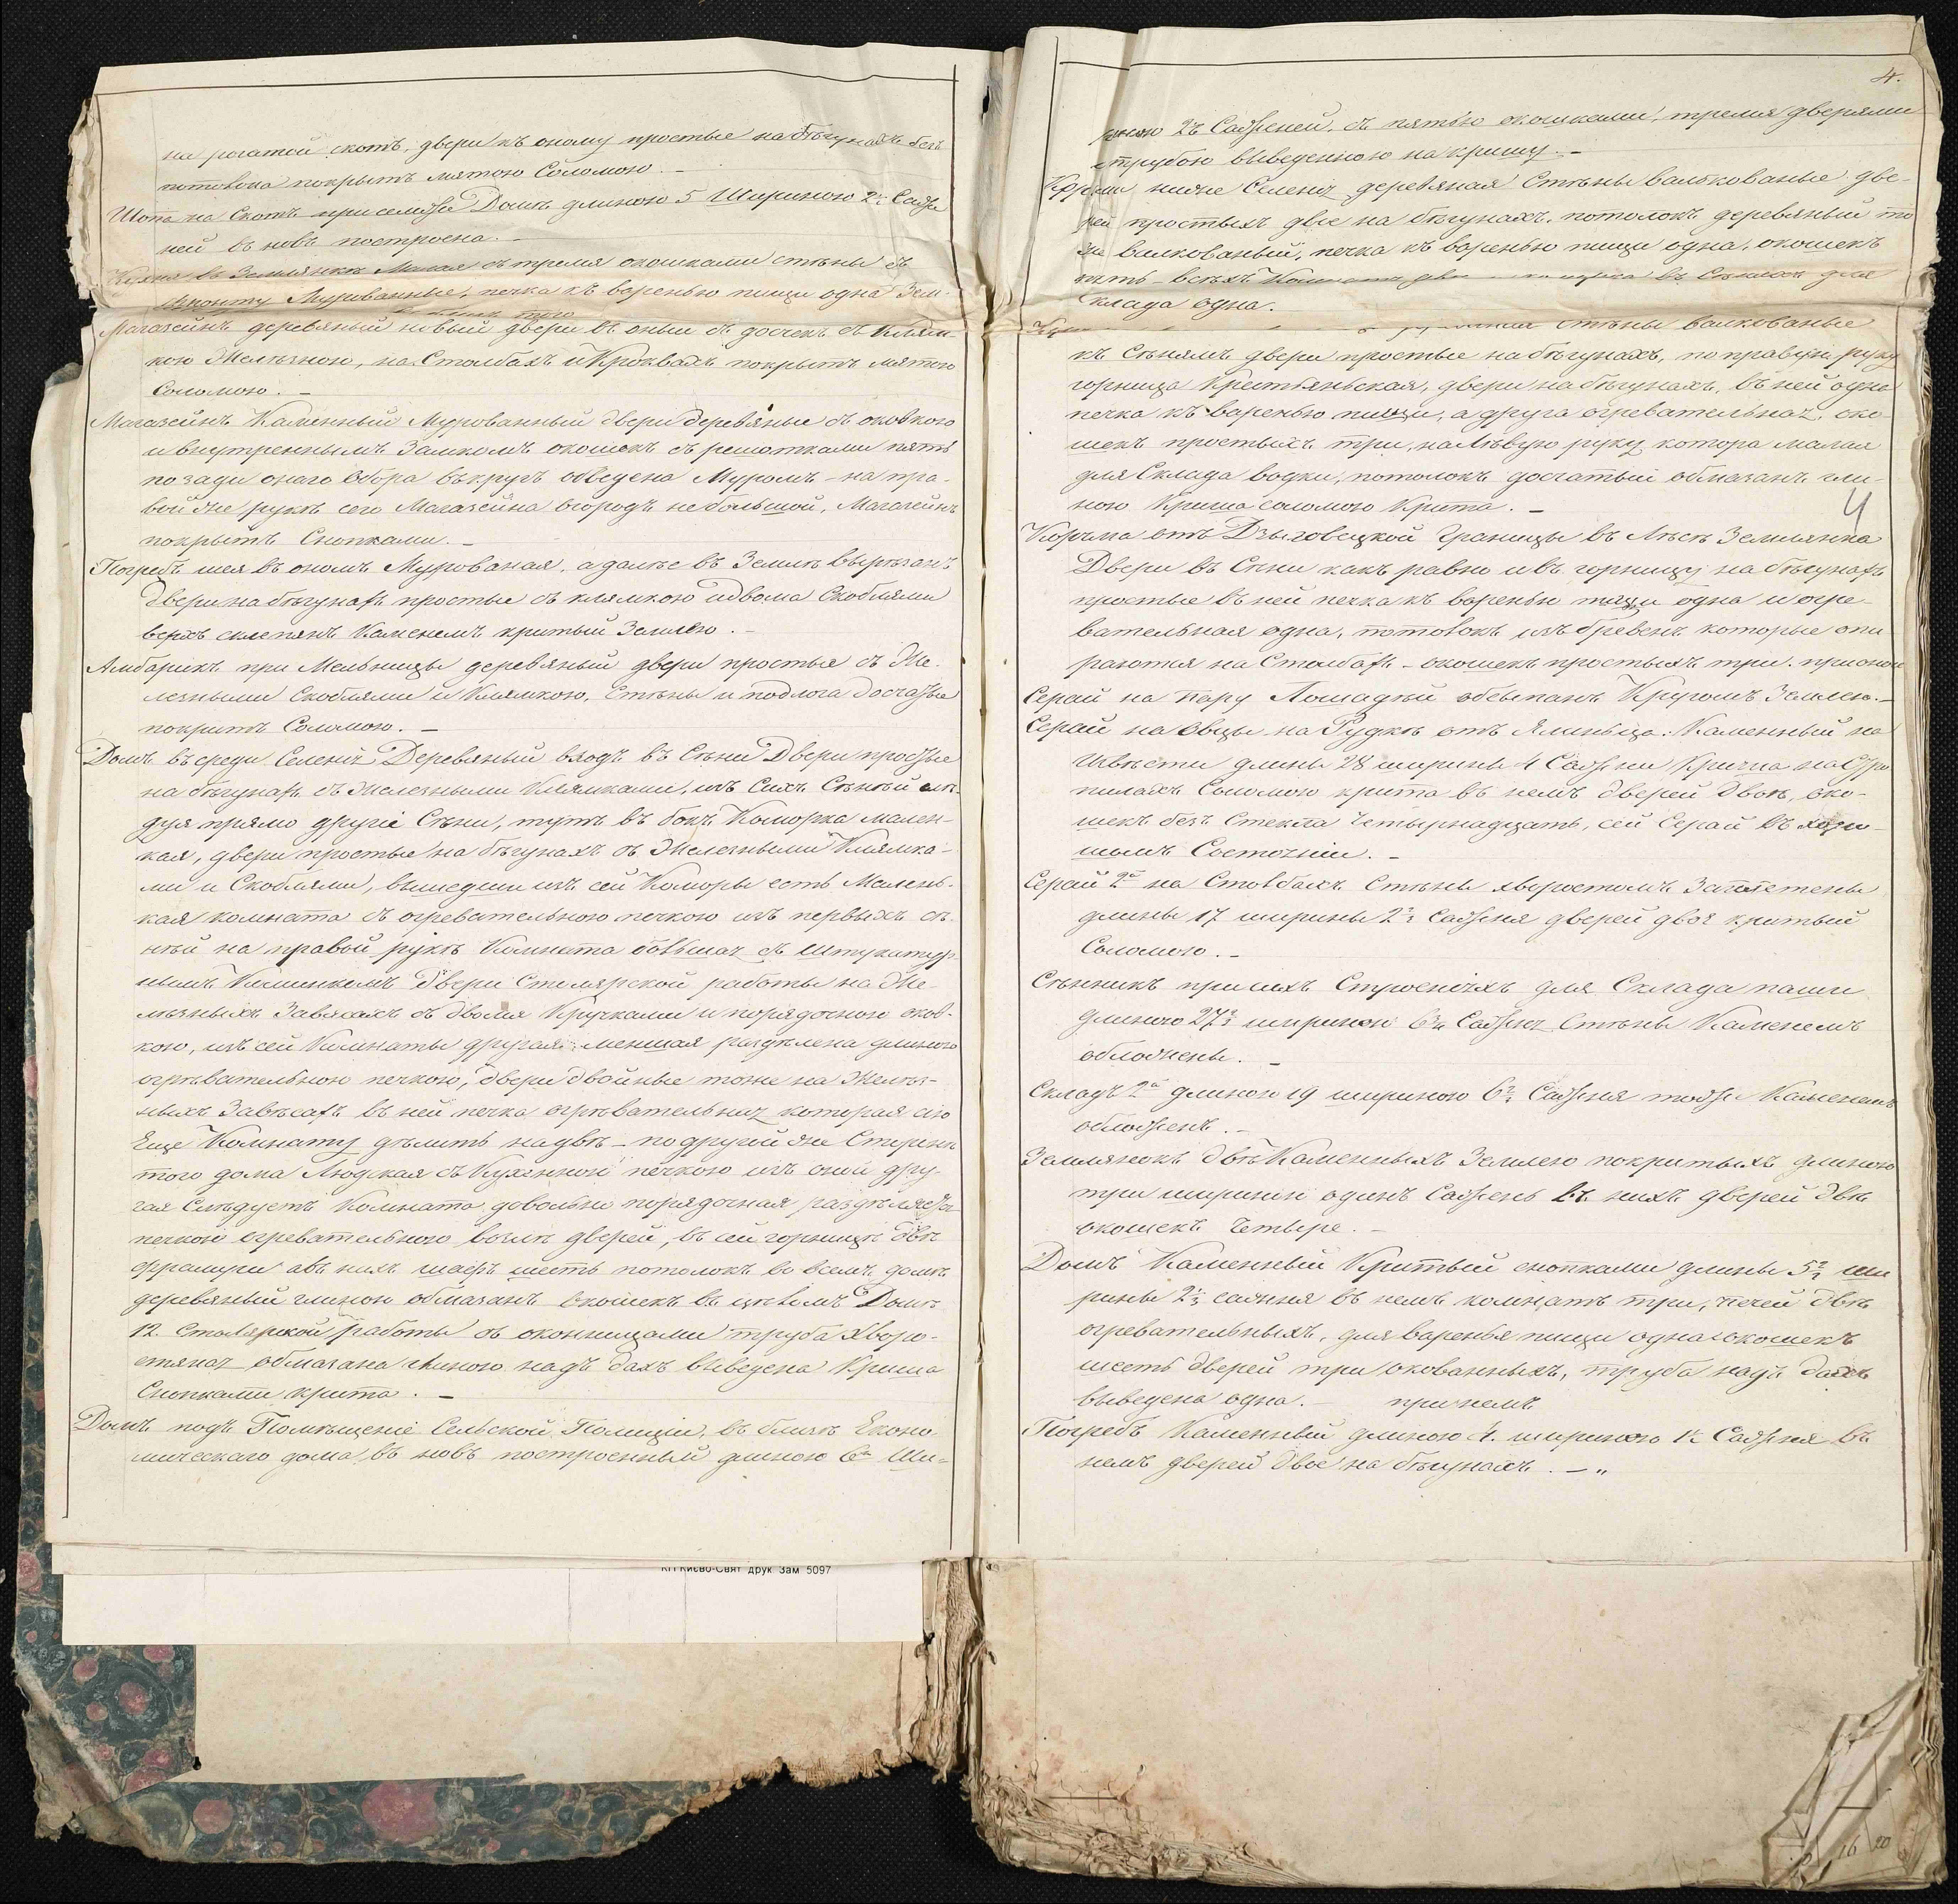 на рогатой скотъ, двери къ оному простые на бѣгунахъ безъ
потовока покрытъ мятою Соломою. —
Шопа на Скотъ при семже Домѣ длиною 5 Шириною 2½ Саже
ней въ новѣ построена. —
Кухня въ Землянкѣ Малая съ тремя окошками стены съ
Фронту Мурованные, печка къ варенью пищи одна Зем-
Магазейнъ деревяный новый двери въ оный съ досчекъ съ Клям-
кою Желѣзною, на Столбахъ и Кроквахъ покрытъ мятою
Соломою. —
Магазейнъ Каменный Мурованный двери деревяные съ оковкою
и внутреннымъ Замкомъ окошекъ съ решотками пять
по зади онаго обора въкругъ обведена Муромъ — на пра-
вой же рукѣ сего Магазейна огородъ не большой, Магазейнъ
покрытъ Снопками. —
Погребъ шея въ ономъ Мурованая, а далѣе въ Землѣ вырѣзанъ
двери на бѣгунахъ простые съ клямкою и двома Скоблями
верхъ склепянъ Каменемъ критый Землею. —
Амбарикъ при Мельницы деревяный двери простые съ Же-
лезными Скоблями и Клямкою, Стѣны и подлога досчатые
покритъ Соломою. —
Домъ въ среди Селенія Деревяный входъ въ Сѣни Двери простые
на бѣгунахъ съ Железными Клямками, изъ Сихъ Сѣнъй слѣ-
дуя прямо другіе Сѣни, тутъ въ бокъ Коморка мален-
кая, двери простые на бѣгунахъ съ Железными Клямка-
ми и Скоблями, вышедши изъ сей Коморы есть Малень-
кая комната съ огревательною печкою изъ первыхъ сѣ-
нѣй на правой рукѣ Комната большая съ Штукатур-
нымъ Каминкомъ двери Столярской работы на Же-
лѣзныхъ Завясахъ съ двомя Кручками и порядочною оков-
кою, изъ сей Комнаты другая меншая раздѣлена длиною
огрѣвательною печкою, двери двойные тоже на Желѣз-
ныхъ Завѣсахъ въ ней печка огрѣвательная которая сію
Еще Комнату дѣлитъ на двѣ — по другой же Сторонѣ
того дома Людская съ Кухенной печкою изъ оной дру-
гая Слѣдуетъ Комната довольно порядочная раздѣляется
печкою огревательною возлѣ дверей, въ сей горницѣ двѣ
фрамуги а въ нихъ шафъ шесть потолокъ во всемъ домѣ
деревяный глиною обмазанъ Окошекъ въ цѣломъ Домѣ
12. Столярской работы съ оконницами труба хворо-
стяная обмазана глиною надъ дахъ выведена Криша
Снопками крита. —
Домъ подъ Помѣщеніе Сельской Полиціи, въ близѣ Еконо-
мическаго дома въ новѣ построенный длиною 6½ Ши=
4.
риною 2½ Саженей, съ пятью окошками, тремя дверями
и трубою выведенною на кришу. —
ниже Селенія деревяная Стѣны валькованые две-
рей простыхъ двѣ на бѣгунахъ, потолокъ деревяный то
же валкованый, печка къ варенью пищи одна, окошекъ
пять — всѣхъ
клада одна.
стѣны валкованые
къ Сѣнямъ двери простые на бѣгунахъ, по правую руку
горница Крестьяньская, двери на бѣгунахъ, въ ней одна
печка къ варенью пищи, а друга огревательная, око-
шекъ простыхъ три, на лѣвую руку котора малая
для Склада водки, потолокъ досчатый обмазанъ гли-
ною Криша соломою Крита. —
4
Корчма отъ Дзыговецкой Границы въ Лѣсѣ Землянка
Двери въ Сѣни какъ равно и въ горницу на бѣгунахъ
простые въ ней печка къ варенью пищи одна и огре-
вательная одна, потовокъ изъ бревенъ которые опи
раются на Столбахъ — окошекъ простыхъ три. при оной
Серай на Пару Лошадей обсыпанъ Кругомъ Землею. —
Серай на Овцы на Рудкѣ отъ Ялинца. Каменный на
Извѣсти длины 28 ширины 4 Сажни Криша на Стро
пилахъ Соломою крита въ немъ дверей двое, око-
шекъ безъ Стекла Четырнадцать, сей Серай въ хоро-
шомъ Состояніи. —
Серай 2й на Столбахъ Стѣны хворостомъ Заплетены
длины 17 ширины 2½ Сажня дверей двоя критый
Соломою. —
Сѣнникъ при сихъ Строеніяхъ для Склада паши
длиною 27½ шириною 6¾ Сажня Стѣны Каменемъ
обложены. —
Складъ 2й длиною 19 шириною 6½ Сажня тоже Каменемъ
обложенъ. —
Землянокъ двѣ Каменныхъ Землею покритыхъ длиною
три шириною одинъ Сажень въ нихъ дверей двѣ
окошекъ Четыре. —
Домъ Каменный Критый снопками длины 5½ ши
рины 2½ сажня въ немъ комнатъ три, печей двѣ
огревательныхъ, для варенья пищи одна окошекъ
шесть дверей три окованныхъ, труба надъ дахъ
выведена одна. — при немъ
Погребъ Каменный длиною 4. шириною 1½ Сажня въ
немъ дверей двое на бѣгунахъ. — „
КП Києво-Свят друк Зам 5097
16 20